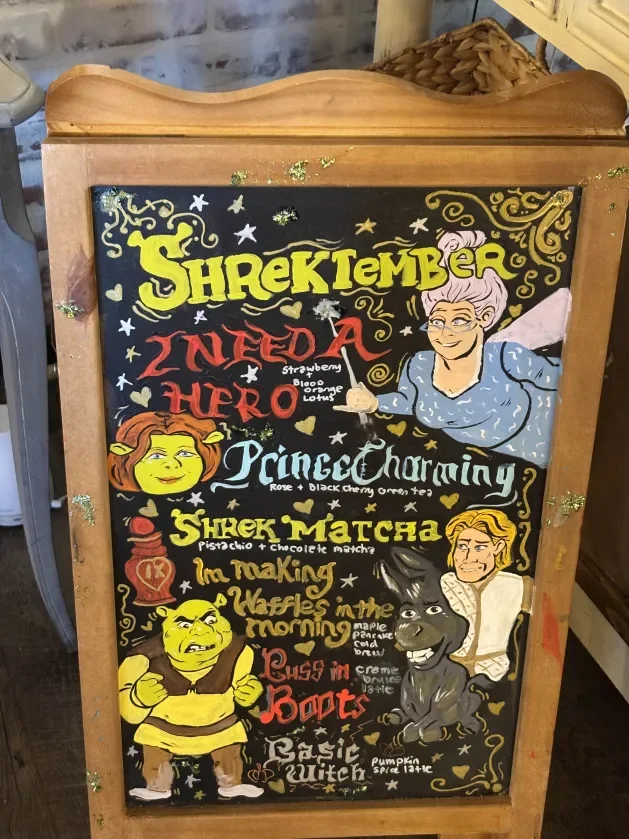 SHREKTEMBER
I NEED A
HERO
Strawberry
+
Blood
orange
Lotus
Prince Charming
Rose + Black cherry Green tea
SHREK MATCHA
Pistachio + chocolate matcha
IX
Im making
Waffles in the
morning
maple
pancake
cold
brew
Puss in
Boots
creme
brulee
latte
Basic
Witch
Pumpkin
spice latte